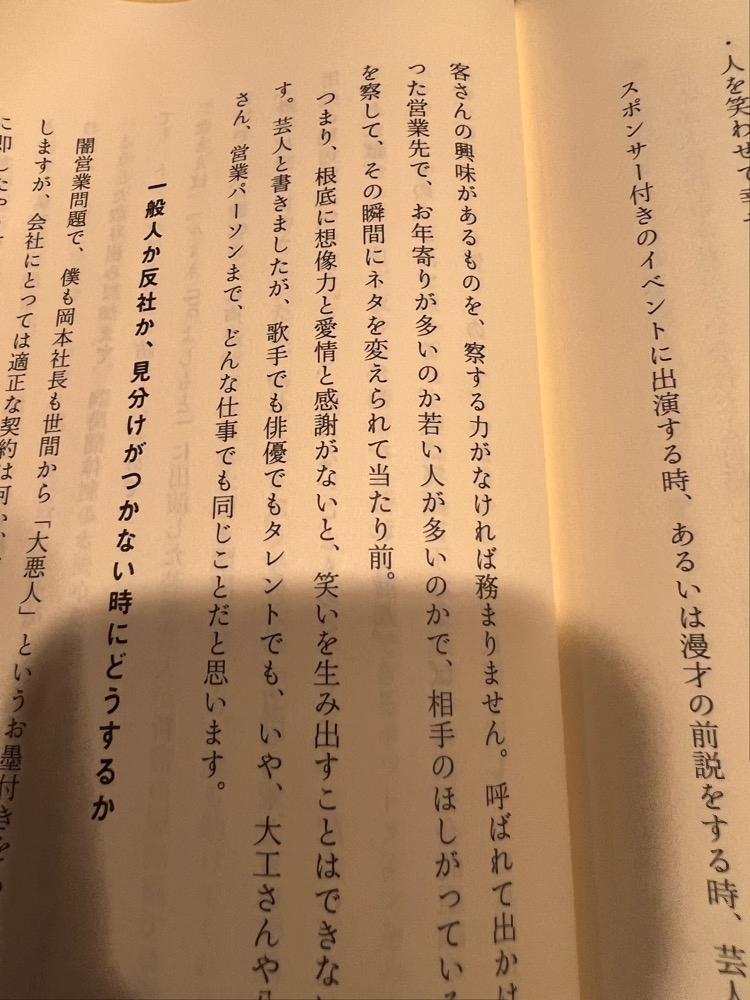 ・人を笑わせて
スポンサー付きのイベントに出演する時、あるいは漫才の前説をする時、芸人
客さんの興味があるものを、察する力がなければ務まりません。呼ばれて出か
った営業先で、お年寄りが多いのか若い人が多いのかで、相手のほしがっている
を察して、その瞬間にネタを変えられて当たり前。
つまり、根底に想像力と愛情と感謝がないと、笑いを生み出すことはできない
す。芸人と書きましたが、歌手でも俳優でもタレントでも、いや、大工さんや
さん、営業パーソンまで、どんな仕事でも同じことだと思います。
一般人か反社か、見分けがつかない時にどうするか
闇営業問題で、僕も岡本社長も世間から「大悪人」というお墨付きを
しますが、会社にとっては適正な契約は何
に即した